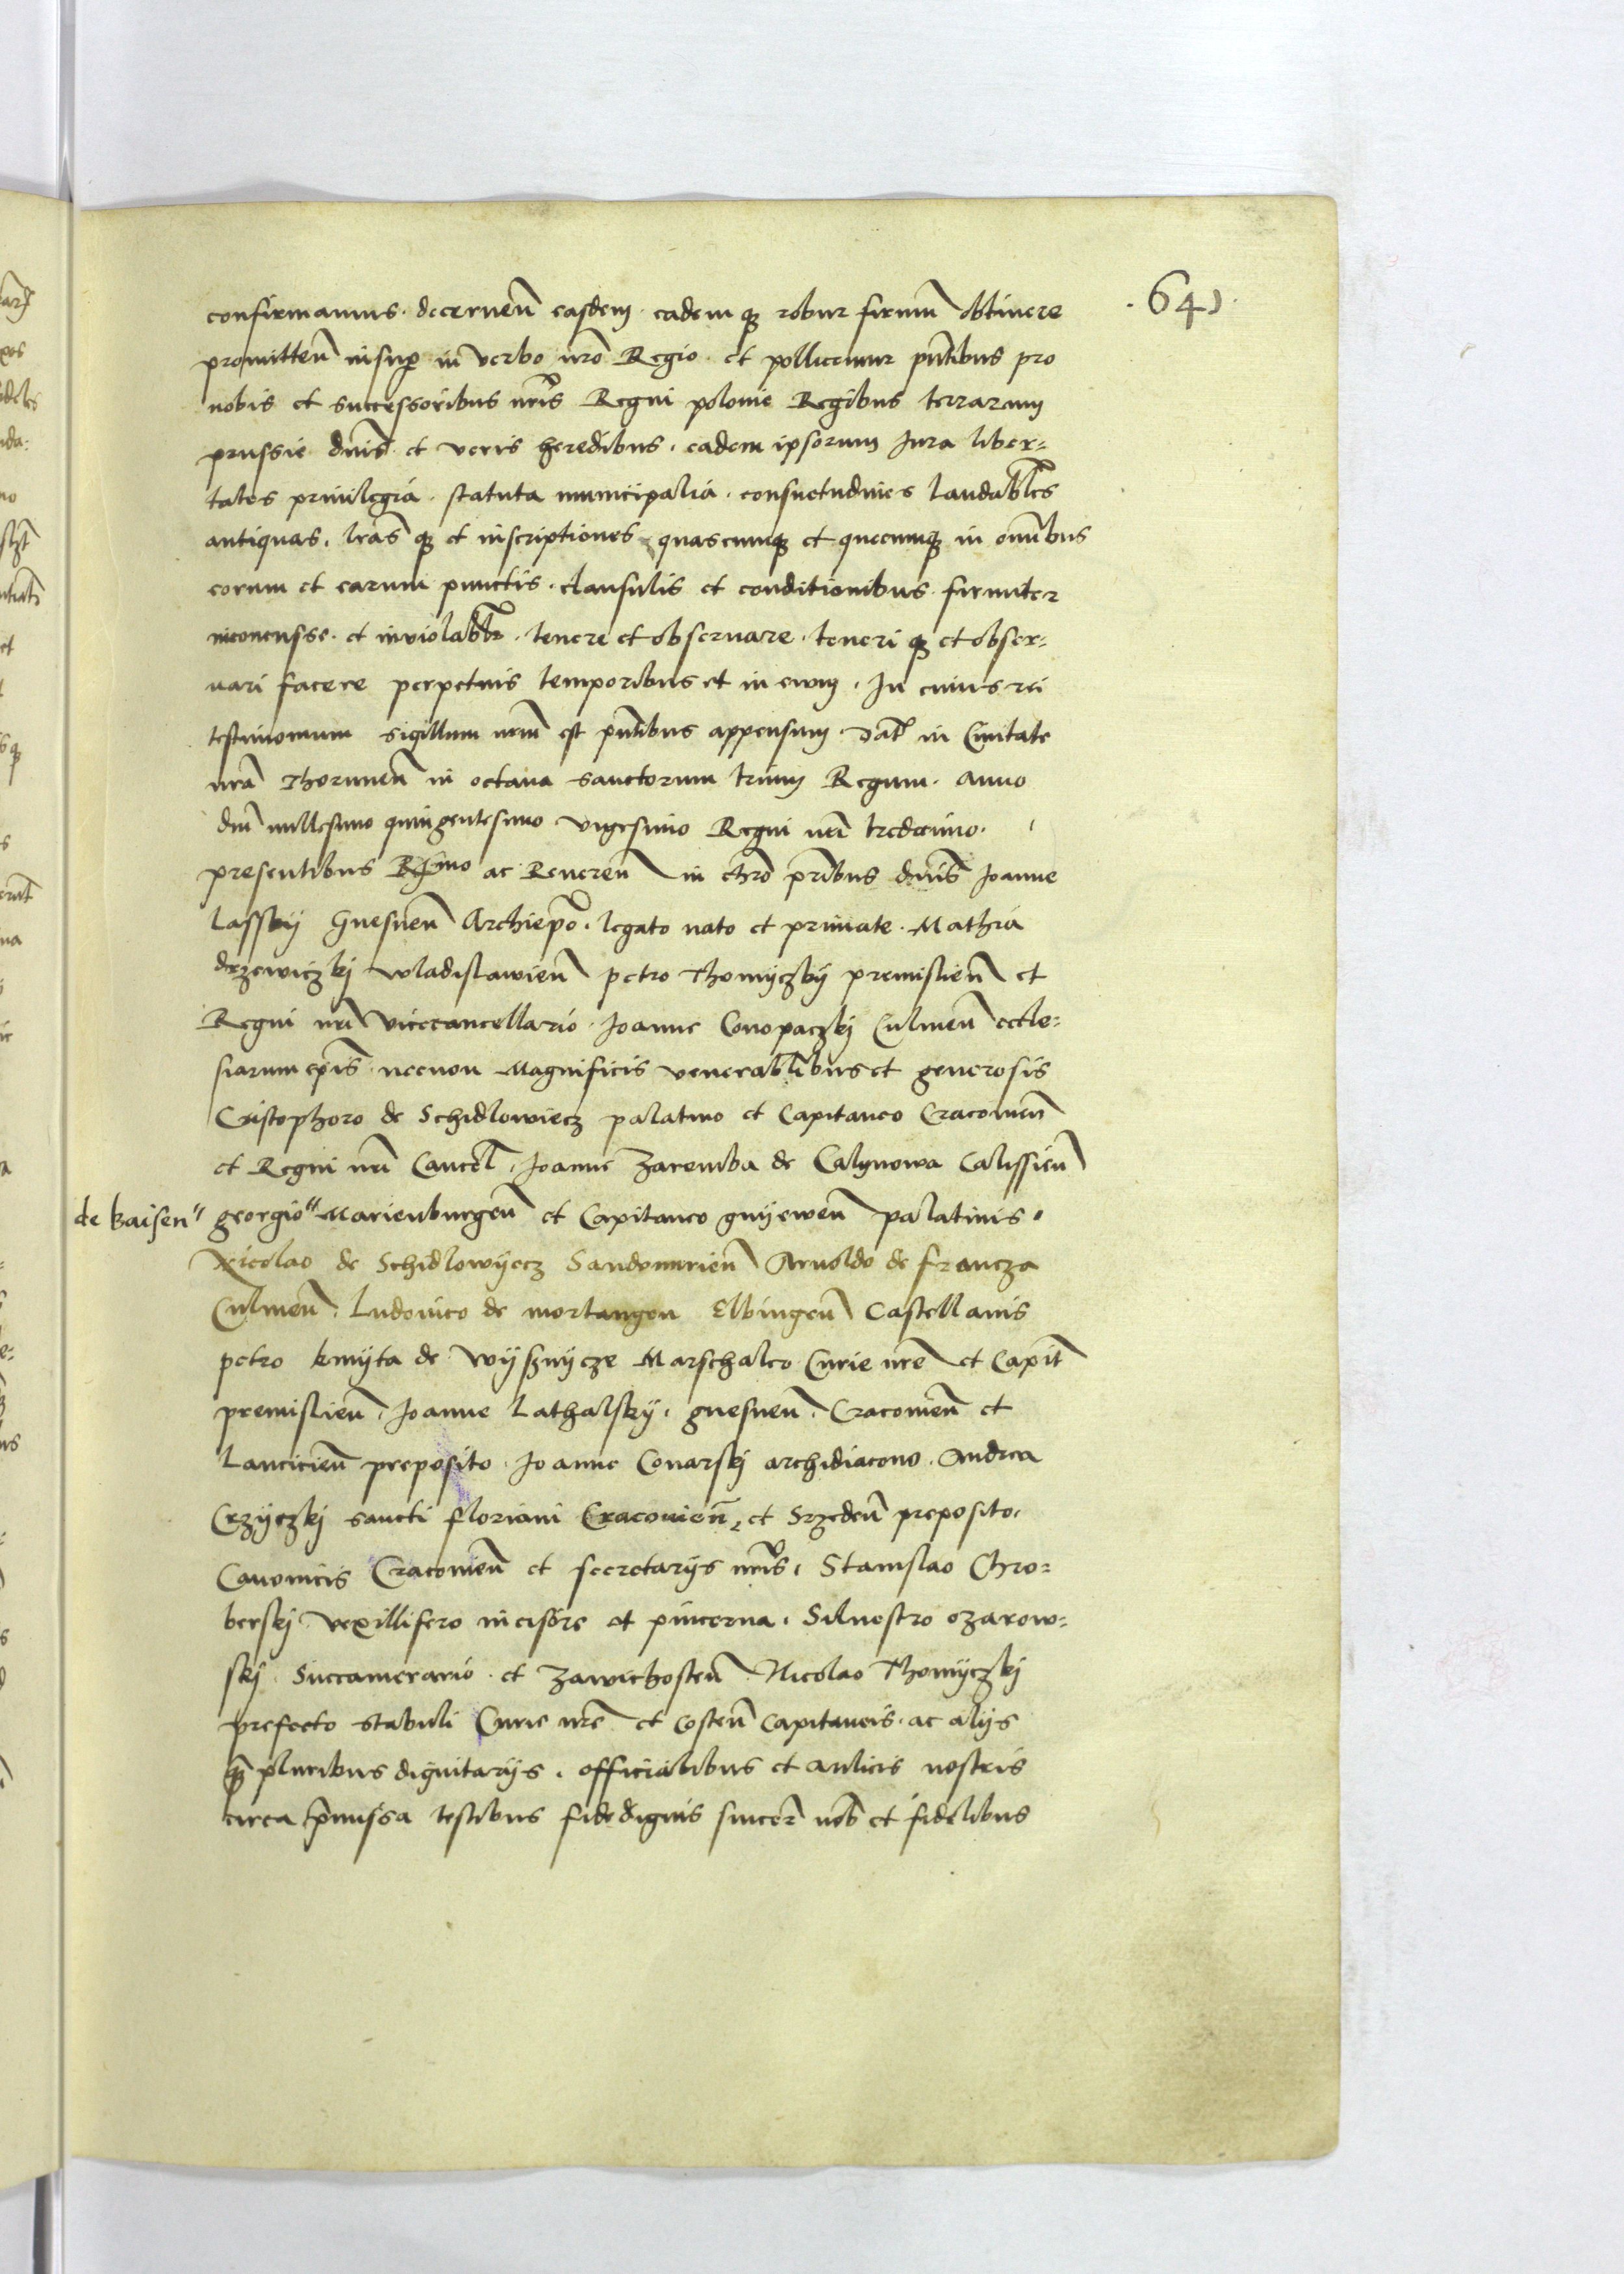 ·64)·
confirmamus · decerneñ easdem · eadem qз robur firmũ obtinere
promitteñ insup̱ in verbo nr̃o Regio · et pollicemur pñtibus pro
nobis et successoribus nr̃is Regni polonie Regibus terrarum
prussie dñis et veris heredibus · eadem ipsorum Jura liber=
tates priuilegia · statuta municipalia · consuetudines laudabl̃es
antiquas · lr̃as qз et inscriptiones quascumqз et quecumqз in omĩbus
eorum et earum punctis · clausulis et conditionibus · firmiter
inconcusse · et inuiolabĩlr · tenere et obseruare · teneri qз et obser=
uari facere perpetuis temporibus et in ewm · In cuius rei
testimonium sigillum nr̃m est pñtibus appensum · Dat̃ in Ciuitate
nr̃a Thoruneñ in octaua sanctorum trium Regum · Anno
dñi millesimo quingentesimo vigesimo Regni nr̃i tredecimo ·
presentibus Rσ̃mo ac Reuereñ in chr̃o pr̃ibus dñis Joanne
Lassky Gnesneñ Archiep̃o · legato nato et primate · Mathia
drzewiczkj wladislawieñ petro Thomyczky premislieñ et
Regni nr̃i Vicecancellario · Joanne Conopaczkj Culmeñ eccle=
siarum ep̃is · necnon Magnificis venerabl̃ibus et generosis
Cristophoro de Schidlowiecz palatino et Capitaneo Cracouieñ
et Regni nr̃i Cancel̃ · Joanne Zaremba de Calynowa Calissieñ
de baisen" georgio" Marienburgeñ et Capitaneo gnyeweñ palatinis ·
Nicolao de Schidlowyecz Sandomirieñ Arnoldo de francza
Culmeñ · Ludouico de mortangen Elbingeñ Castellanis
petro kmyta de wysznycze Marschalco Curie nr̃e et Capit̃
premislieñ · Joanne Lathalsky · gnesneñ · Cracouieñ et
Lancicieñ preposito · Joanne Conarskj archidiacono · Andrea
Crzyczkj sancti floriani Cracouieñ, et Srzedeñ preposito ·
Canonicis Cracouieñ et secretarys nr̃is · Stanislao Chro=
berskj vexillifero incisore et pincerna · Siluestro ozarow=
skj Succamerario · et Zawichosteñ Nicolao Thomyczkj
prefecto stabuli Curie nr̃e et Costeñ Capitaneis · ac alys
q̃ pluribus dignitarys · officialibus et aulicis nostris
circa p̃missa testibus fidedignis sincer̃ nob̃ et fidelibus